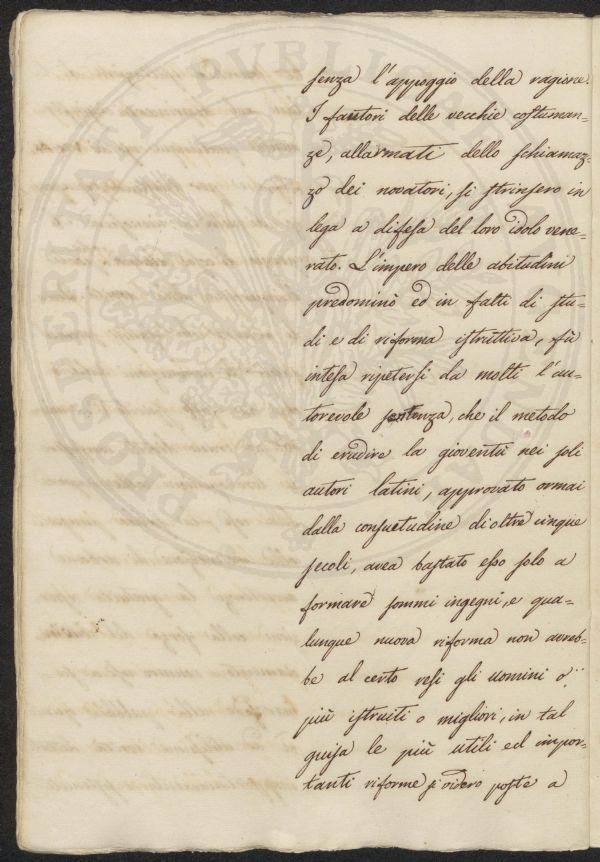 senza l'appoggio della ragione.
I fautori delle vecchie costuman=
ze, allarmati dello schiamaz=
zo dei novatori, si strinsero in
lega a difesa del loro idolo vene=
rato. L'impero delle abitudini
predominò ed in fatti di stu=
di e di riforma istruttiva, fù
intesa ripetersi da molti l'au=
torevole sentenza, che il metodo
di erudire la gioventù nei soli
autori latini, approvato ormai
dalla consuetudine di oltre cinque
secoli, avea bastato esso solo a
formare sommi ingegni, e qua=
lunque nuova riforma non avreb=
be al certo resi gli uomini o
più istruiti o migliori, in tal
guisa le più utili ed impor=
tanti riforme si videro poste a